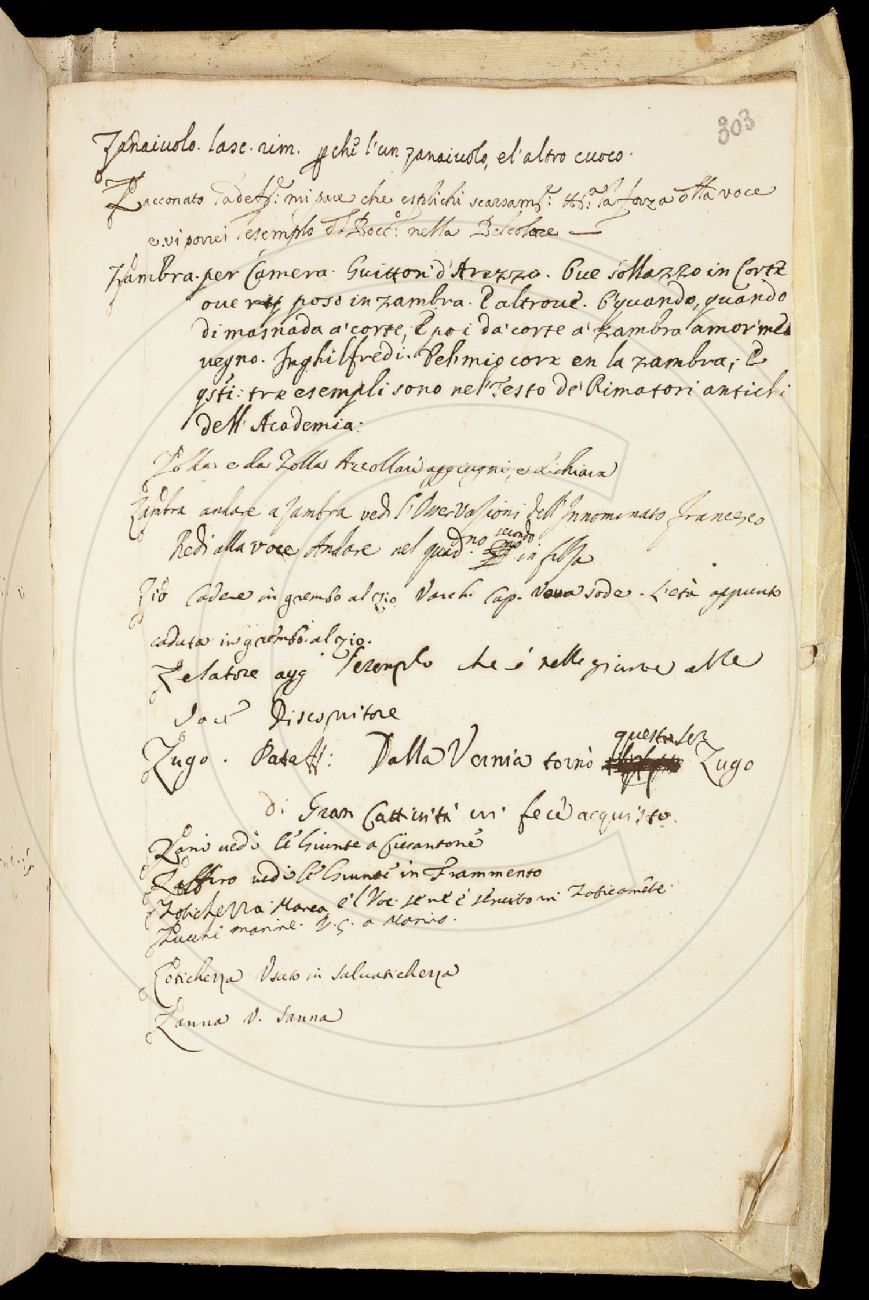 303
Zanaiuolo. lasc. rim. pchè l'un zanaiuolo, e l'altro cuoco.
Zacconato la def.: mi pare che esplichi scarsam.: la forza della voce
e vi porrei l'esemplo del Bocc.o nella Belcolore
Zambra. per Camera. Guitton d'Arezzo. Ove sollazzo in Corte
ove poso in zambra. E altrove. E quando, quando
di masnada a' corte, E poi da' corte a' zambra amor me
vegno. Inghilfredi. Del mio core en la zambra; E
qsti: tre esempli sono nel Testo de' Rimatori antichi
dell'Academia:
Zolla e da Zolla Azollare aggiugni, e dichiara
Zambra andare a zambra vedi l'Osservazioni dell'Innominato Francesco
Redi alla voce Andare nel quad.no secondo in filza
Zio Cadere in grembo al zio Varch. Cap. Vova sode. L'età appunto
caduta in grembo al zio.
Zelatore agg l'esemplo che è nelle giunte alle
voce Discopritore
Zugo. Pataff: Dalla Vernia tornò questo ser Zugo
di Gran Cattività vi fece acquisto.
Zani vedi le Giunte a Pierantone
Zaffiro vedi le Giunte in Frammento
Zotichezza. Manca e'l Voc. se ne è servito in Zoticamente.
Zucche marine. V. G. a Marino.
Zotichezza Usato in Salvatichezza
Zanna V. Sanna